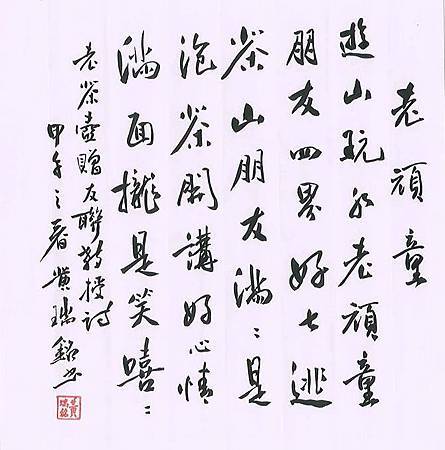 老頑童
遊山玩水老頑童
朋友四界好七逃
茶山朋友滿:是
泡茶開講好心情
滿面攏是笑嘻:
老茶壺贈友聯教授詩
甲午之春黃瑞銘书
黃瑞銘